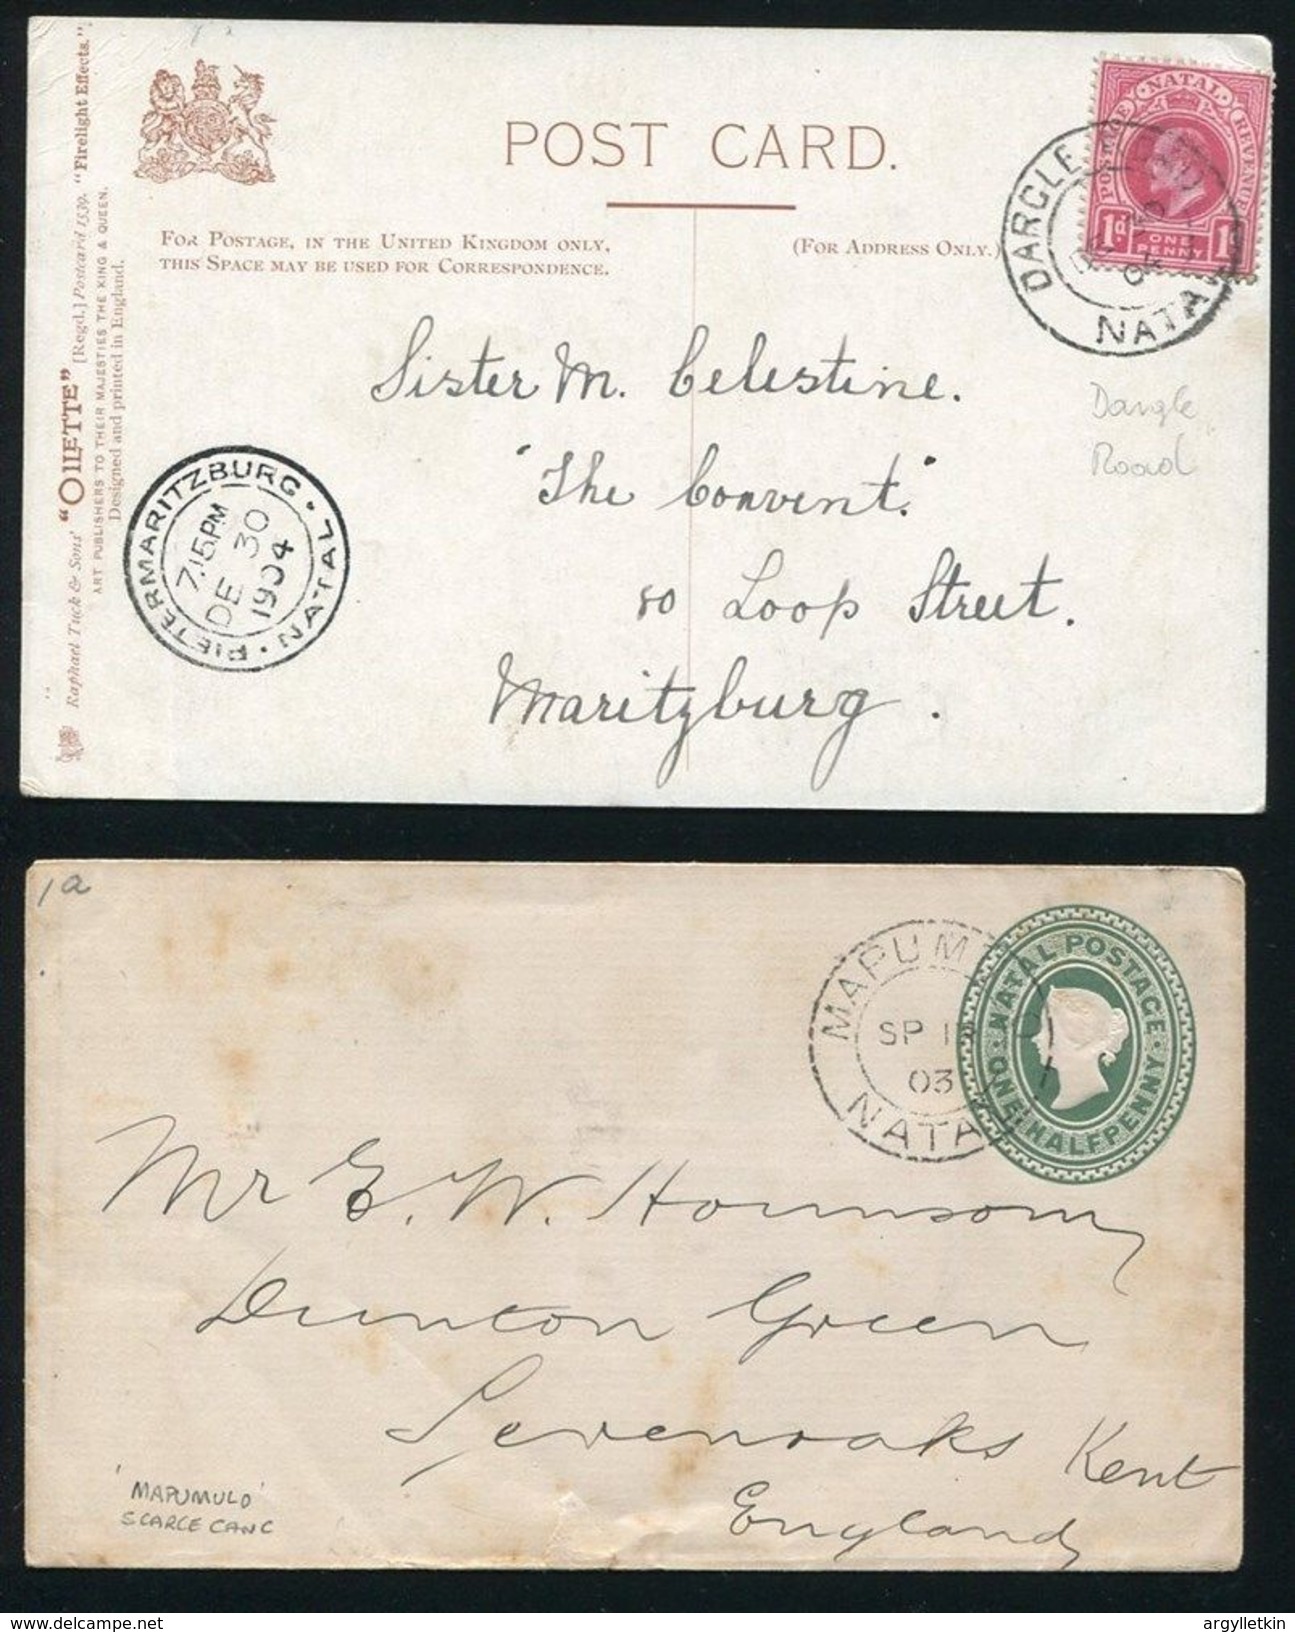 POST CARD.
FOR POSTAGE, IN THE UNITED KINGDOM ONLY,
THIS SPACE MAY BE USED FOR CORRESPONDENCE.
(FOR ADDRESS ONLY.)
Raphael Tuck & Sons' "OILETTE" [Regd.] Postcard 1539. "Firelight Effects."
ART PUBLISHERS TO THEIR MAJESTIES THE KING & QUEEN.
Designed and printed in England.
NATAL
POSTAGE REVENUE
1d 1d
ONE PENNY
DARGLE
DE 30
04
NATAL
Sister M. Celestine.
Dargle
Road
"The Convent."
80 Loop Street.
Maritzburg.
PIETERMARITZBURG · NATAL
7.15 PM
DE 30
1904
1a
MAPUM
SP 1
03
NATA
NATAL POSTAGE
ONE HALFPENNY
Mr E. W. Hounsom
Dunton Green
Sevenoaks Kent
England
'MAPUMULO'
SCARCE CANC
www.delcampe.net
argylletkin